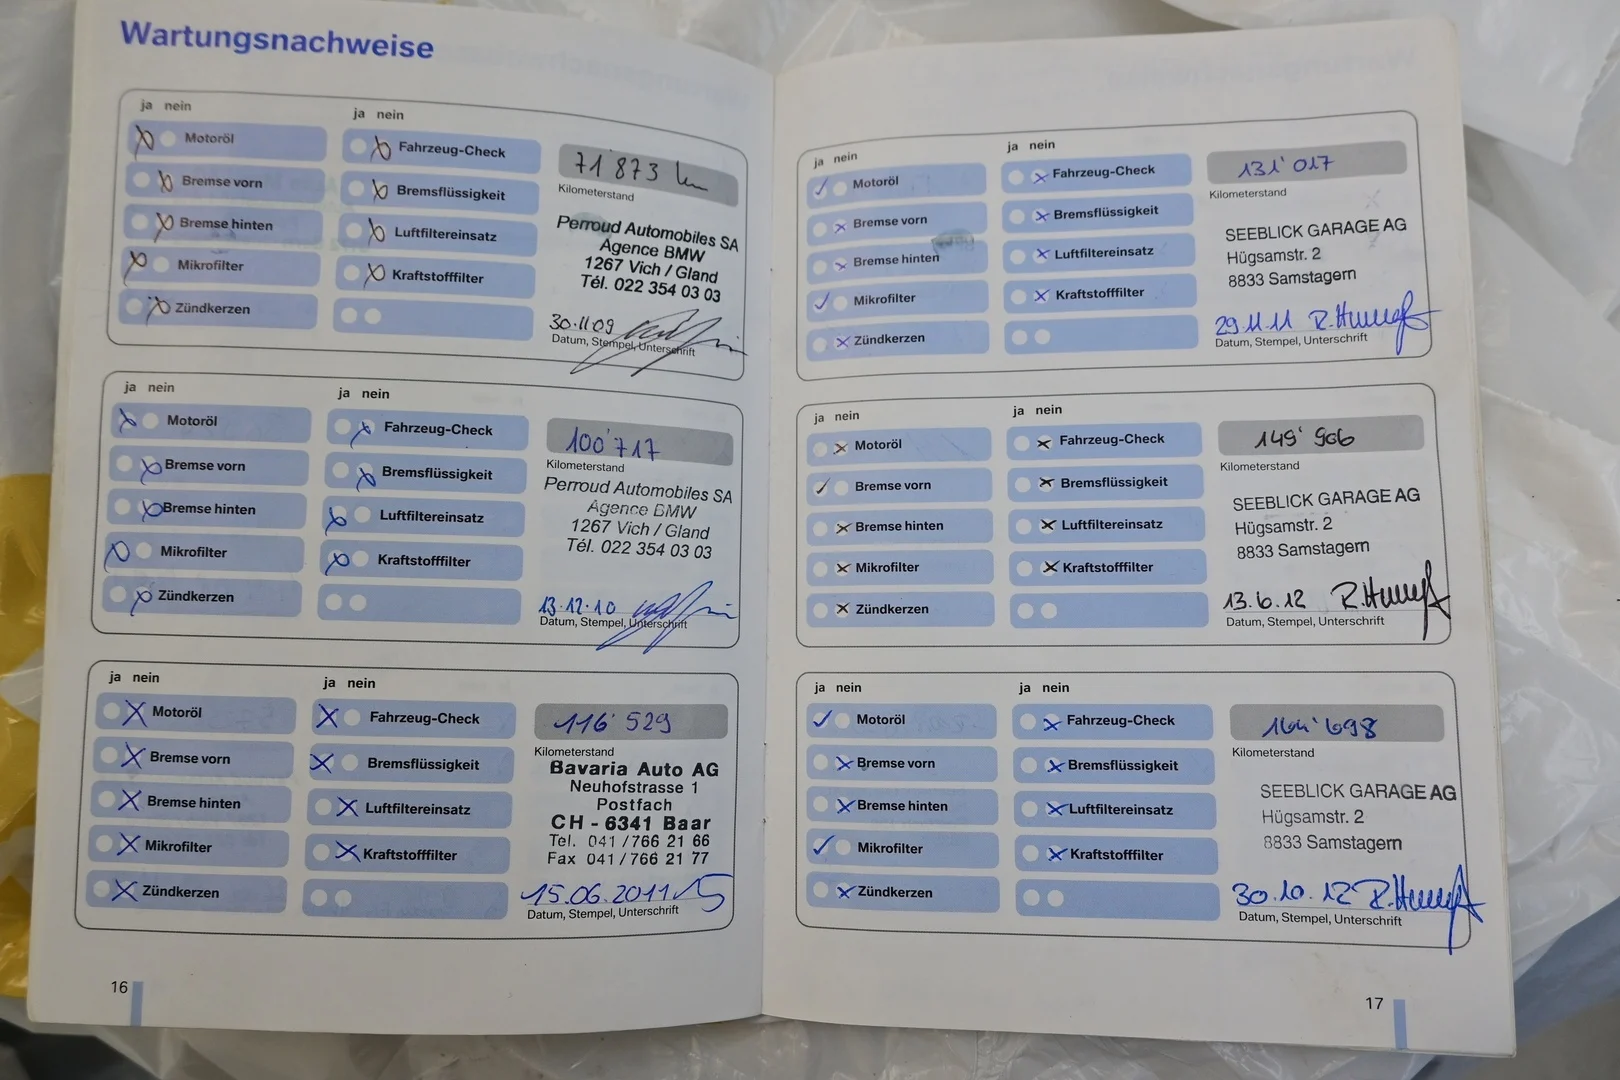 Wartungsnachweise
ja nein
Motoröl
Bremse vorn
Bremse hinten
Mikrofilter
Zündkerzen
ja nein
Fahrzeug-Check
Bremsflüssigkeit
Luftfiltereinsatz
Kraftstofffilter
71 873 km
Kilometerstand
Perroud Automobiles SA
Agence BMW
1267 Vich / Gland
Tél. 022 354 03 03
30.11 09
Datum, Stempel, Unterschrift
ja nein
Motoröl
Bremse vorn
Bremse hinten
Mikrofilter
Zündkerzen
ja nein
Fahrzeug-Check
Bremsflüssigkeit
Luftfiltereinsatz
Kraftstofffilter
100'717
Kilometerstand
Perroud Automobiles SA
Agence BMW
1267 Vich / Gland
Tél. 022 354 03 03
13.12.10
Datum, Stempel, Unterschrift
ja nein
Motoröl
Bremse vorn
Bremse hinten
Mikrofilter
Zündkerzen
ja nein
Fahrzeug-Check
Bremsflüssigkeit
Luftfiltereinsatz
Kraftstofffilter
116'529
Kilometerstand
Bavaria Auto AG
Neuhofstrasse 1
Postfach
CH - 6341 Baar
Tel. 041 / 766 21 66
Fax 041 / 766 21 77
15.06.2011
Datum, Stempel, Unterschrift
16
ja nein
Motoröl
Bremse vorn
Bremse hinten
Mikrofilter
Zündkerzen
ja nein
Fahrzeug-Check
Bremsflüssigkeit
Luftfiltereinsatz
Kraftstofffilter
131'017
Kilometerstand
SEEBLICK GARAGE AG
Hügsamstr. 2
8833 Samstagern
29.11.11
Datum, Stempel, Unterschrift
ja nein
Motoröl
Bremse vorn
Bremse hinten
Mikrofilter
Zündkerzen
ja nein
Fahrzeug-Check
Bremsflüssigkeit
Luftfiltereinsatz
Kraftstofffilter
149'906
Kilometerstand
SEEBLICK GARAGE AG
Hügsamstr. 2
8833 Samstagern
13.6.12
Datum, Stempel, Unterschrift
ja nein
Motoröl
Bremse vorn
Bremse hinten
Mikrofilter
Zündkerzen
ja nein
Fahrzeug-Check
Bremsflüssigkeit
Luftfiltereinsatz
Kraftstofffilter
164'698
Kilometerstand
SEEBLICK GARAGE AG
Hügsamstr. 2
8833 Samstagern
30.10.12
Datum, Stempel, Unterschrift
17